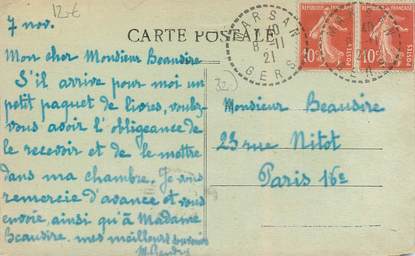 12-€
7 nov.
CARTE POSTALE
Mon cher Monsieur Beausire
S'il arrive pour moi un
petit paquet de livres, voulez
vous avoir l'obligeance de
le recevoir et de le mettre
dans ma chambre. Je vous
remercie d'avance et vous
envoie, ainsi qu'à Madame
Beausire, mes meilleurs souvenirs
MARSAN
8-11
21
GERS
REPUBLIQUE FRANÇAISE
10c
POSTES
REPUBLIQUE FRANÇAISE
10c
POSTES
21
32
Monsieur Beausire
23 rue Nitot
Paris 16e